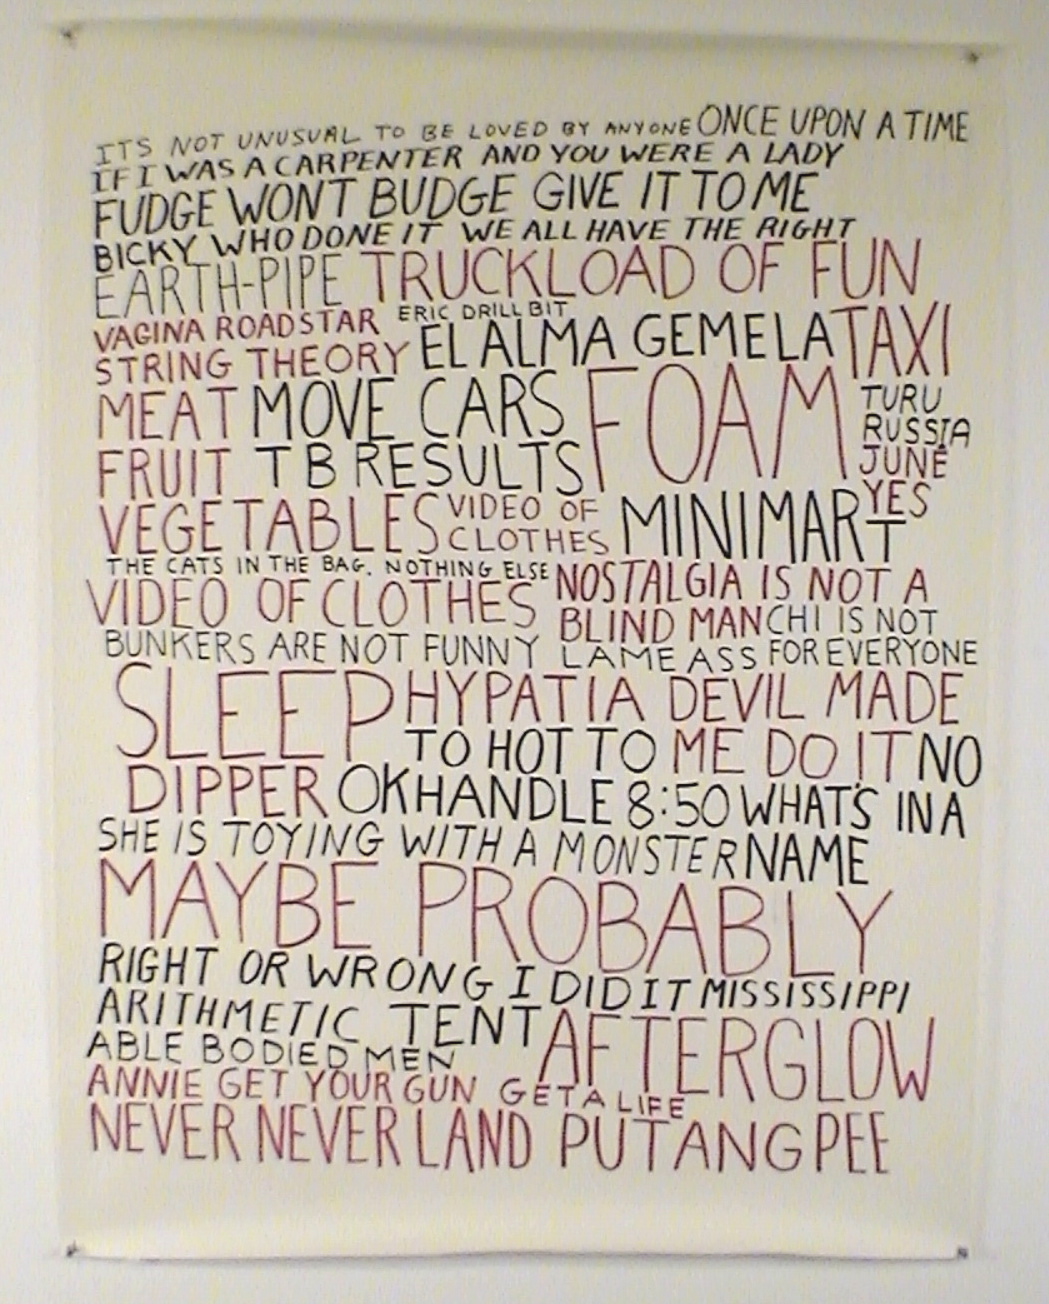 ITS NOT UNUSUAL TO BE LOVED BY ANYONE ONCE UPON A TIME
IF I WAS A CARPENTER AND YOU WERE A LADY
FUDGE WONT BUDGE GIVE IT TO ME
BICKY WHO DONE IT WE ALL HAVE THE RIGHT
EARTH-PIPE TRUCKLOAD OF FUN
VAGINA ROADSTAR ERIC DRILL BIT
STRING THEORY EL ALMA GEMELA TAXI
MEAT MOVE CARS FOAM TURU
RUSSIA
FRUIT TB RESULTS JUNE
YES
VEGETABLES VIDEO OF
CLOTHES MINIMART
THE CATS IN THE BAG. NOTHING ELSE
VIDEO OF CLOTHES NOSTALGIA IS NOT A
BLIND MAN CHI IS NOT
BUNKERS ARE NOT FUNNY LAME ASS FOR EVERYONE
SLEEP HYPATIA DEVIL MADE
TO HOT TO ME DO IT NO
DIPPER OK HANDLE 8:50 WHAT'S IN A
SHE IS TOYING WITH A MONSTER NAME
MAYBE PROBABLY
RIGHT OR WRONG I DID IT MISSISSIPPI
ARITHMETIC TENT AFTERGLOW
ABLE BODIED MEN
ANNIE GET YOUR GUN GET A LIFE
NEVER NEVER LAND PUTANG PEE